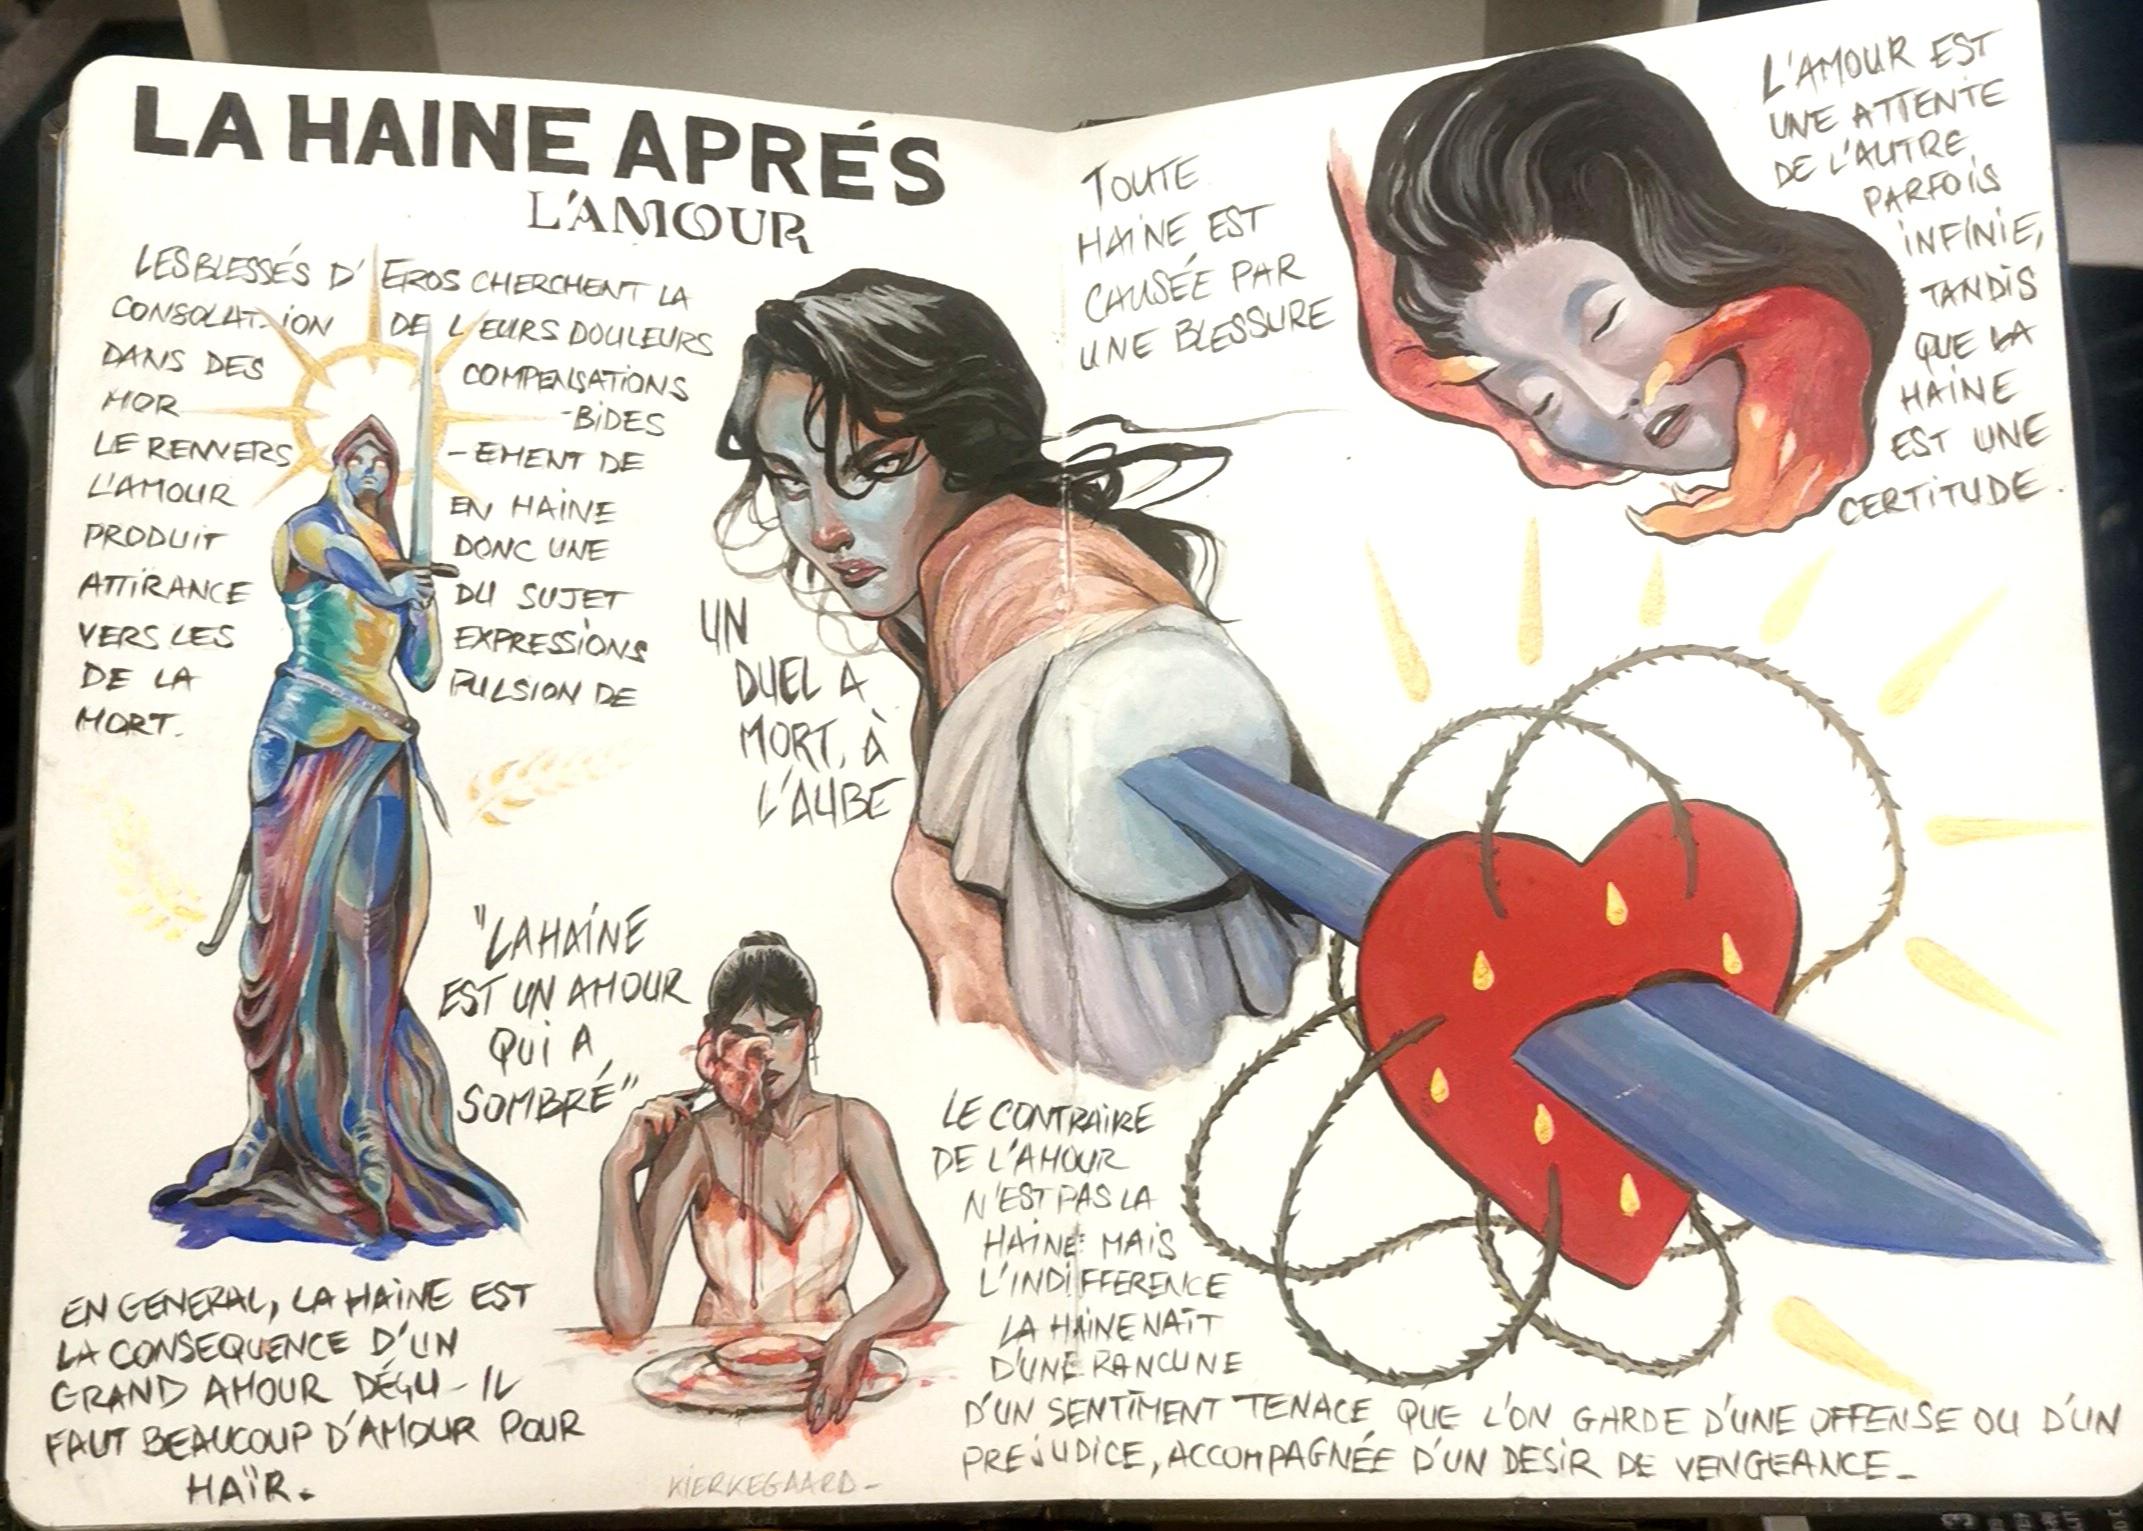 LA HAINE APRÉS
L'AMOUR
LES BLESSÉS D'EROS CHERCHENT LA
CONSOLAT-ION DE LEURS DOULEURS
DANS DES COMPENSATIONS
MOR -BIDES
LE RENVERS -EMENT DE
L'AMOUR EN HAINE
PRODUIT DONC UNE
ATTIRANCE DU SUJET
VERS LES EXPRESSIONS
DE LA PULSION DE
MORT.
"LA HAINE
EST UN AMOUR
QUI A
SOMBRÉ"
KIERKEGAARD-
EN GENERAL, LA HAINE EST
LA CONSEQUENCE D'UN
GRAND AMOUR DÉÇU - IL
FAUT BEAUCOUP D'AMOUR POUR
HAÏR.
UN
DUEL A
MORT, À
L'AUBE
TOUTE
HAINE EST
CAUSÉE PAR
UNE BLESSURE
L'AMOUR EST
UNE ATTENTE
DE L'AUTRE
PARFOIS
INFINIE,
TANDIS
QUE LA
HAINE
EST UNE
CERTITUDE.
LE CONTRAIRE
DE L'AMOUR
N'EST PAS LA
HAINE MAIS
L'INDIFFERENCE
LA HAINE NAÎT
D'UNE RANCUNE
D'UN SENTIMENT TENACE QUE L'ON GARDE D'UNE OFFENSE OU D'UN
PREJUDICE, ACCOMPAGNÉE D'UN DESIR DE VENGEANCE_